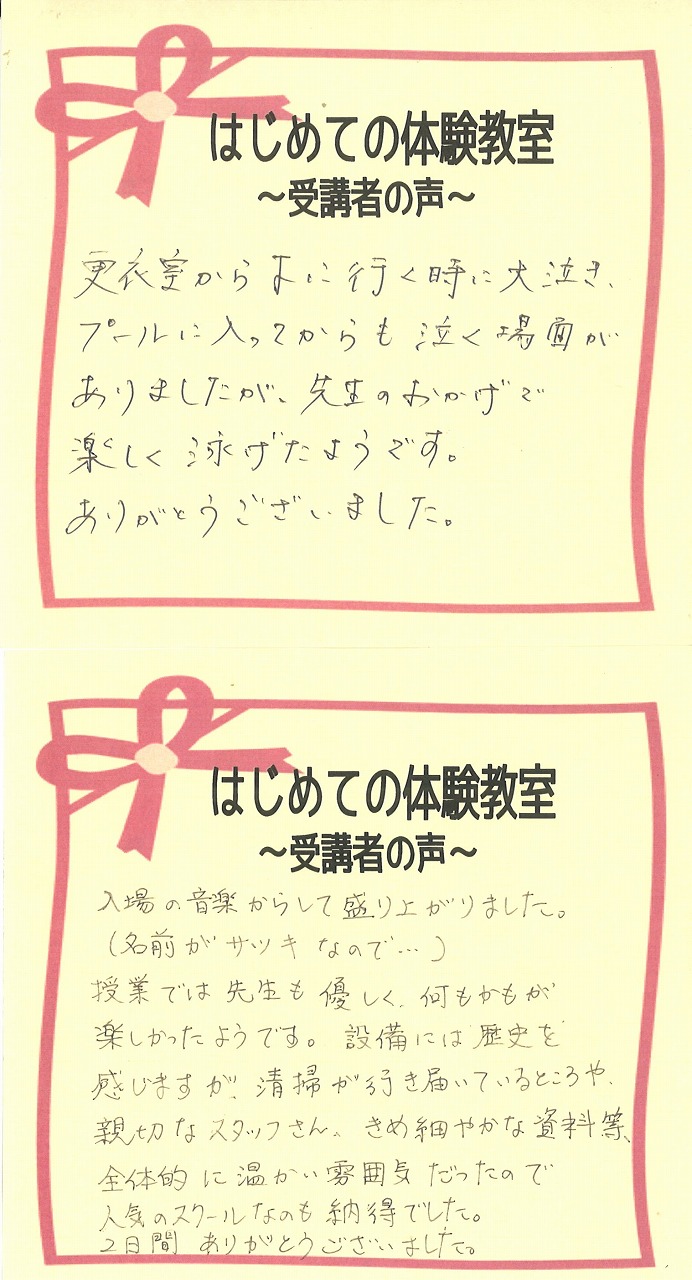 はじめての体験教室
～受講者の声～
更衣室から下に行く時に大泣き、
プールに入ってからも泣く場面が
ありましたが、先生のおかげで
楽しく泳げたようです。
ありがとうございました。
はじめての体験教室
～受講者の声～
入場の音楽からして盛り上がりました。
(名前がサツキなので…)
授業では先生も優しく、何もかもが
楽しかったようです。設備には歴史を
感じますが、清掃が行き届いているところや、
親切なスタッフさん、きめ細やかな資料等、
全体的に温かい雰囲気だったので
人気のスクールなのも納得でした。
2日間ありがとうございました。